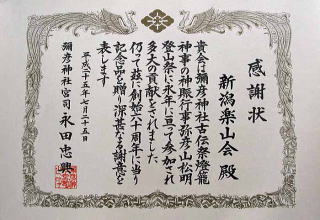 感謝状
新潟楽山会 殿
貴会は彌彦神社古伝祭燈籠
神事の神賑行事弥彦山松明
登山祭に永年に亘って参加され
多大の貢献をされました
仍って茲に創始六十周年に当り
記念品を贈り深甚なる謝意を
表します
平成二十五年七月二十五日
彌彦神社宮司 永田忠興